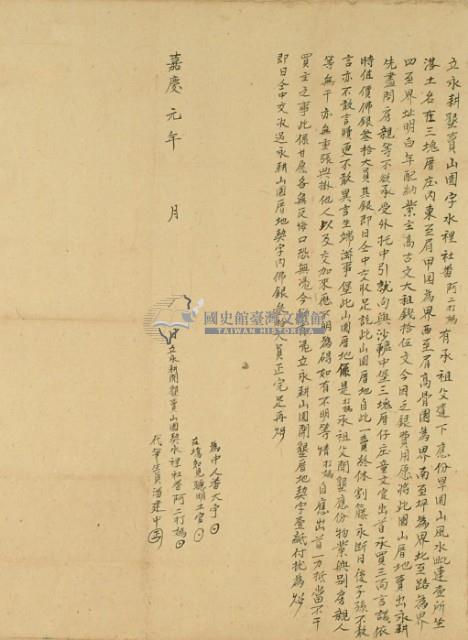 立永耕墾賣山園字水裡社番阿二打馬 有承祖父遺下應份旱園山風水毗連壹所坐
落土名在三塊厝庄內東至眉甲園為界西至眉高骨園為界南至坪為界北至路為界
四至界址明白年配納業主高古文大租錢拾伍文今因乏銀費用愿將此園山厝地賣出永耕
先盡問房親等不欲承受外托中引就向與沙轆中堡三塊厝仔庄童文定出首承買三面言議依
時值價佛銀叁拾大員其銀即日仝中交收足訖此山園厝地自此一賣終休割籐永斷日後子孫不敢
言亦不敢言贖更不敢異言生端滋事保此山園厝地係是打馬承祖父開墾應份物業與別房親人
等無干亦無重張典掛他人以及交加來歷不明為碍如有不明等情打馬自應出首一力抵當不干
買主之事此係甘愿各無反悔口恐無憑今 立永耕山園開墾厝地契字壹紙付执為炤
即日仝中交收過永耕山園厝地契字內佛銀 大員正完足再炤
嘉慶元年 月 日立永耕開墾賣山園契水裡社番阿二打馬
國史館臺灣文獻館
TAIWAN HISTORICA
為中人番大宇
在場知見聰明土官
代筆生員潘建中